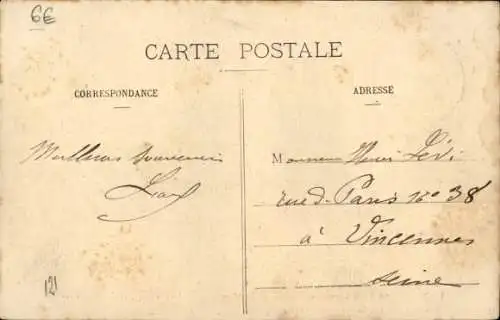 6€
CARTE POSTALE
CORRESPONDANCE
ADRESSE
Meilleurs souvenirs
Monsieur Henri Lévi
rue de Paris No 38
à Vincennes
Seine
121